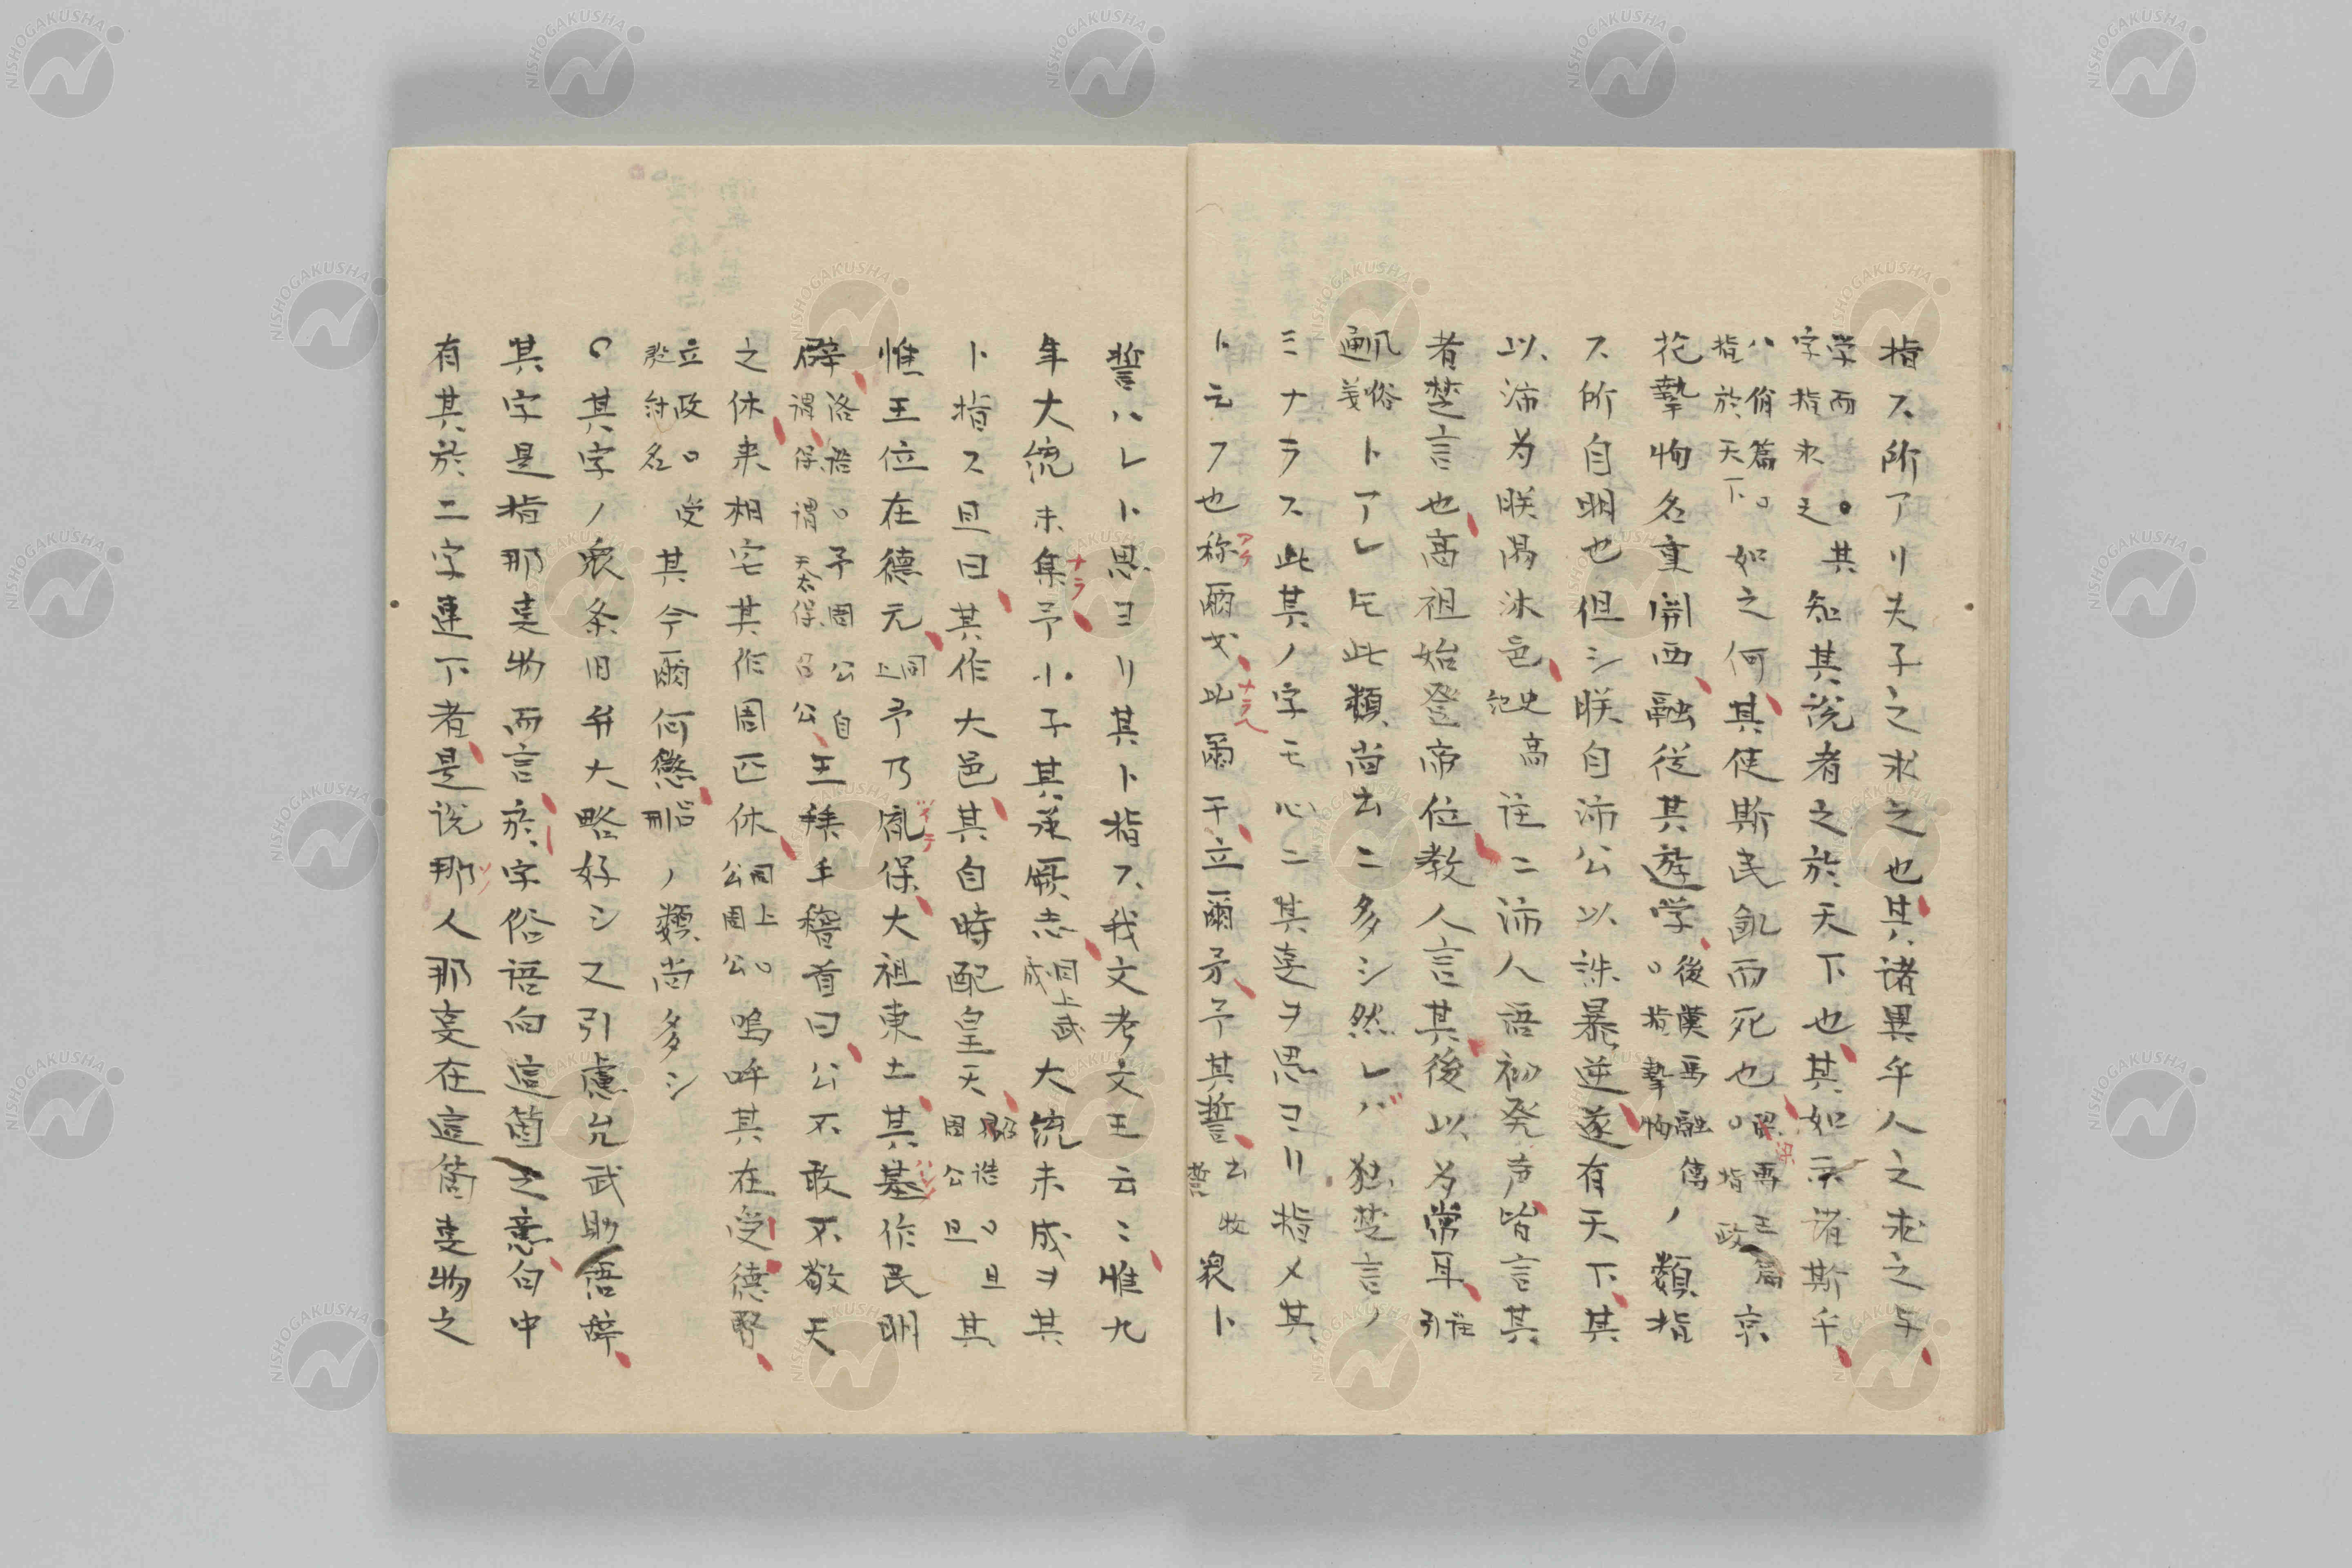 指ス所アリ夫子之求之也其諸異乎人之求之与
学而○其字指求之 知其説者之於天下也其如示諸斯乎
八佾篇○指於天下 如之何其使斯民飢而死也
花摯物名重関西融従其遊学 後漢馬融傳○指摯恂 ノ類指
ス所自明也但シ朕自沛公以誅暴逆遂有天下其
以沛为朕湯沐邑 史高紀 注ニ沛人語初発声皆言其
者楚言也高祖始登帝位教人言其後以为常耳 注引
風俗通義 トアレ𪜈此類尚書ニ多シ然レバ独楚言ノ
ミナラス此其ノ字モ心ニ其事ヲ思ヨリ指メ其
ト云フ也称爾戈比爾干立爾矛予其誓 書牧誓 衆ト
誓ハレト思ヨリ其ト指ス我文考文王云云惟九
年大統未集予小子其承厥志 同上武成 大統未成ヲ其
ト指ス旦曰其作大邑其自時配皇天 召誥○旦周公旦 其
惟王位在德元 同上 予乃胤保大祖東土其基作民明
辟 洛誥○予周公自謂保謂天太保召公 王拜手稽首曰公不敢不敬天
之休来相宅其作周匹休 同上○公周公 嗚呼其在受德暋
立政○受紂名 其今爾何懲 呂刑 ノ類尚多シ
○其字ノ衆条旧弁大略好シ又引慮允武助語辞
其字是指那事物而言於字俗語向這箇之意句中
有其於二字連下者是説那人那事在這箇事物之